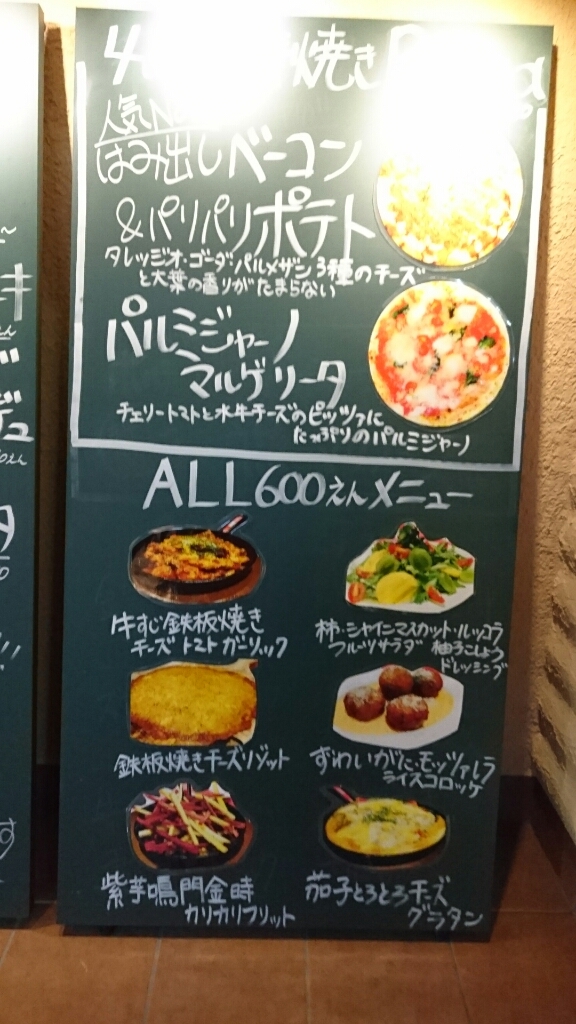 焼き
人気No
はみ出しベーコン
&パリパリポテト
タレッジオ・ゴーダ・パルメザン3種のチーズ
と大葉の香りがたまらない
パルミジャーノ
マルゲリータ
チェリートマトと水牛チーズのピッツァに
たっぷりのパルミジャーノ
ALL600えんメニュー
牛すじ鉄板焼き
チーズトマトガーリック
柿・シャインマスカット・ルッコラ
フルーツサラダ 柚子こしょう
ドレッシング
鉄板焼きチーズリゾット
ずわいがに・モッツァレラ
ライスコロッケ
紫芋鳴門金時
カリカリフリット
茄子とろとろチーズ
グラタン